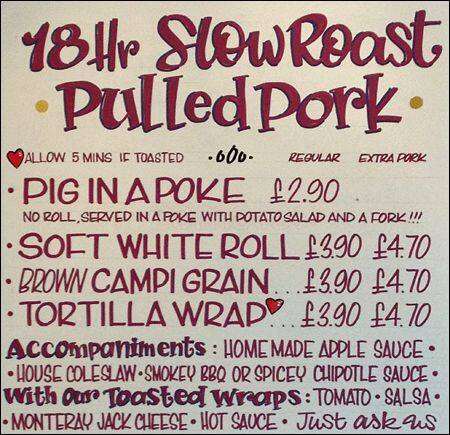 18 Hr Slow Roast
• Pulled Pork •
ALLOW 5 MINS IF TOASTED REGULAR EXTRA PORK
• PIG IN A POKE £2.90
NO ROLL, SERVED IN A POKE WITH POTATO SALAD AND A FORK!!!
• SOFT WHITE ROLL £3.90 £4.70
• BROWN CAMPI GRAIN... £3.90 £4.70
• TORTILLA WRAP... £3.90 £4.70
Accompaniments : HOME MADE APPLE SAUCE •
• HOUSE COLESLAW • SMOKEY BBQ OR SPICEY CHIPOTLE SAUCE •
With Our Toasted Wraps : TOMATO • SALSA •
• MONTERAY JACK CHEESE • HOT SAUCE • Just ask us